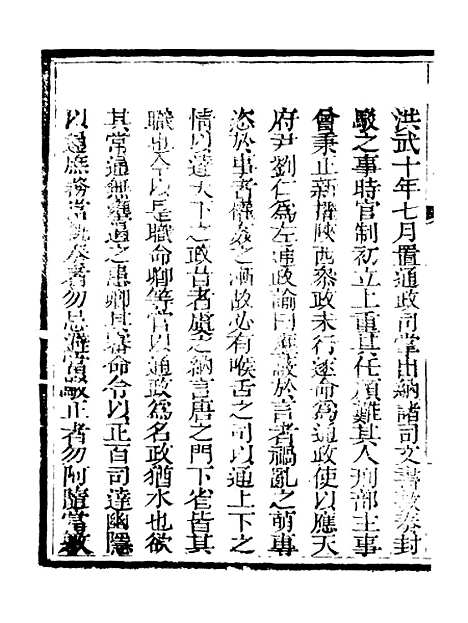 洪武十年七月置通政司掌出納諸司文書敷奏封
駁之事時官制初立上重其任頗難其人刑部主事
曾秉正新擢陝西參政未行遂命為通政使以應天
府尹劉仁為左通政諭曰壅蔽於言者禍亂之萌專
恣於事者權姦之漸故必有喉舌之司以通上下之
情以達天下之政昔者虞之納言唐之門下省皆其
職也今以是職命卿等官以通政為名政猶水也欲
其常通無壅遏之患卿其審命令以正百司達幽隱
以通庶務當執奏者勿忌避當駁正者勿阿隨當敷